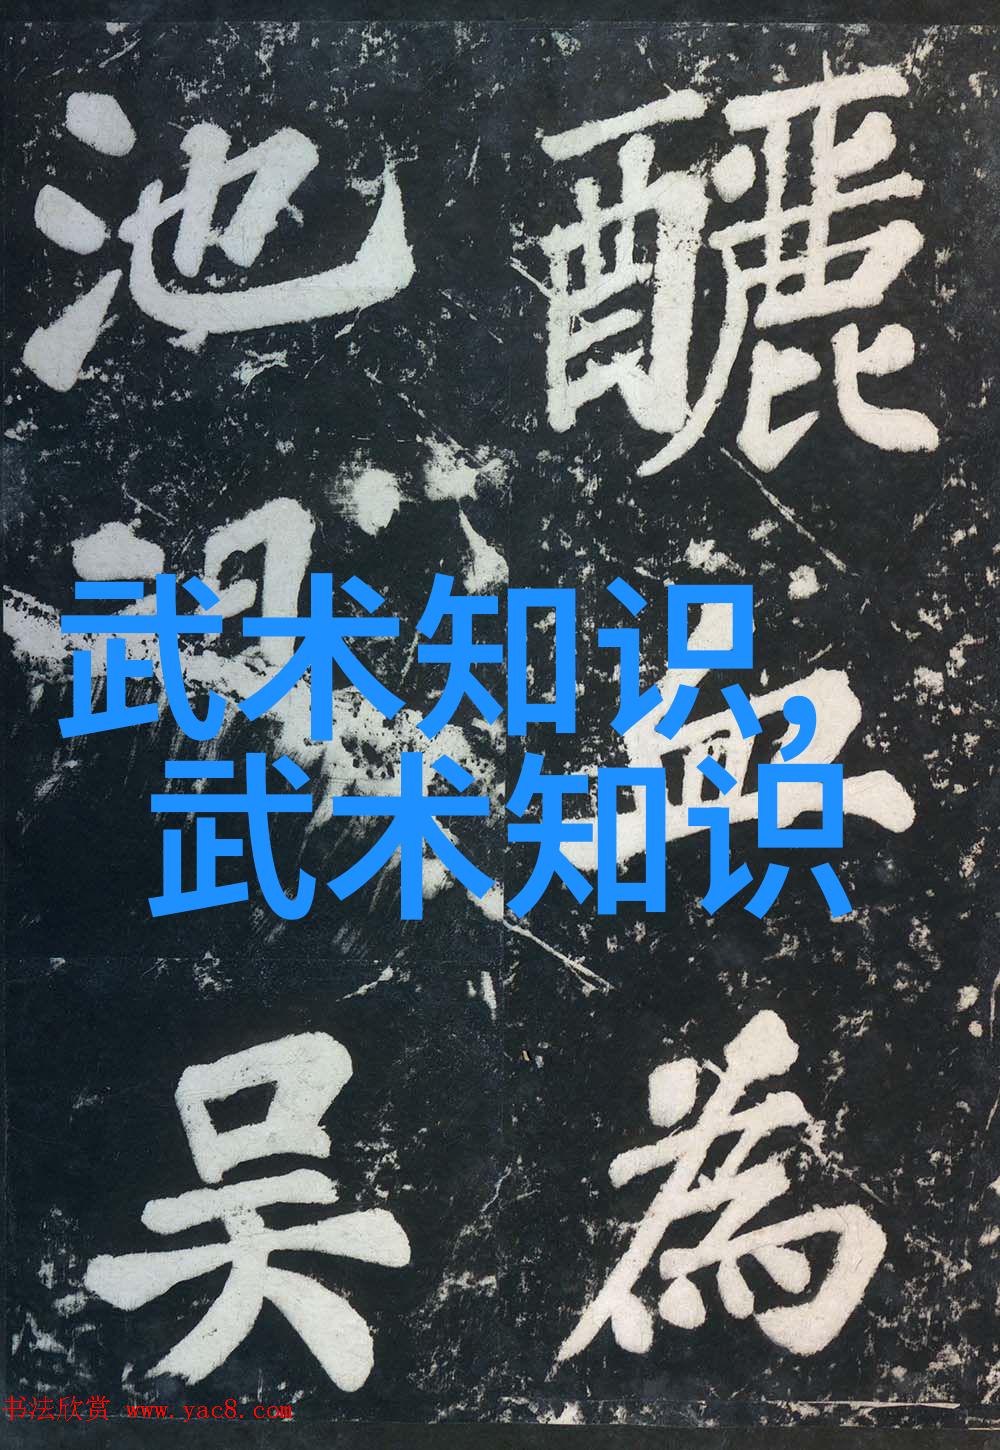 釃血為
池吴
武术知识,
武术知识
书法欣赏 www.yac8.com